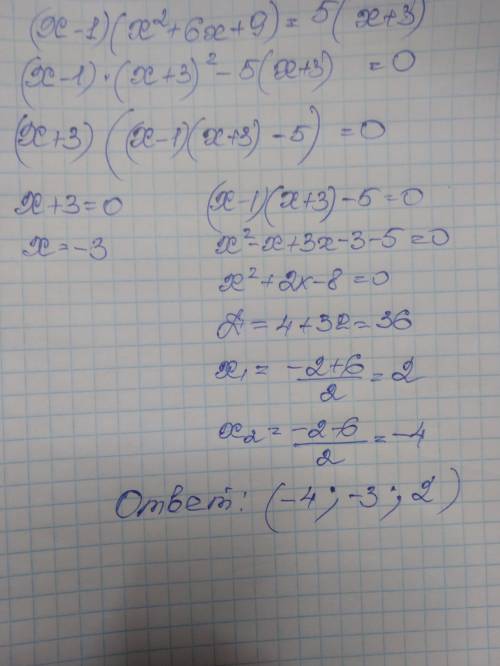 (x-1)(x²+6x+9) = 5(x+3)
(x-1)·(x+3)²-5(x+3) = 0
(x+3)((x-1)(x+3)-5) = 0
x+3=0
x=-3
(x-1)(x+3)-5=0
x²-x+3x-3-5=0
x²+2x-8=0
D=4+32=36
x₁ = (-2+6)/2 = 2
x₂ = (-2-6)/2 = -4
Ответ: (-4; -3; 2)